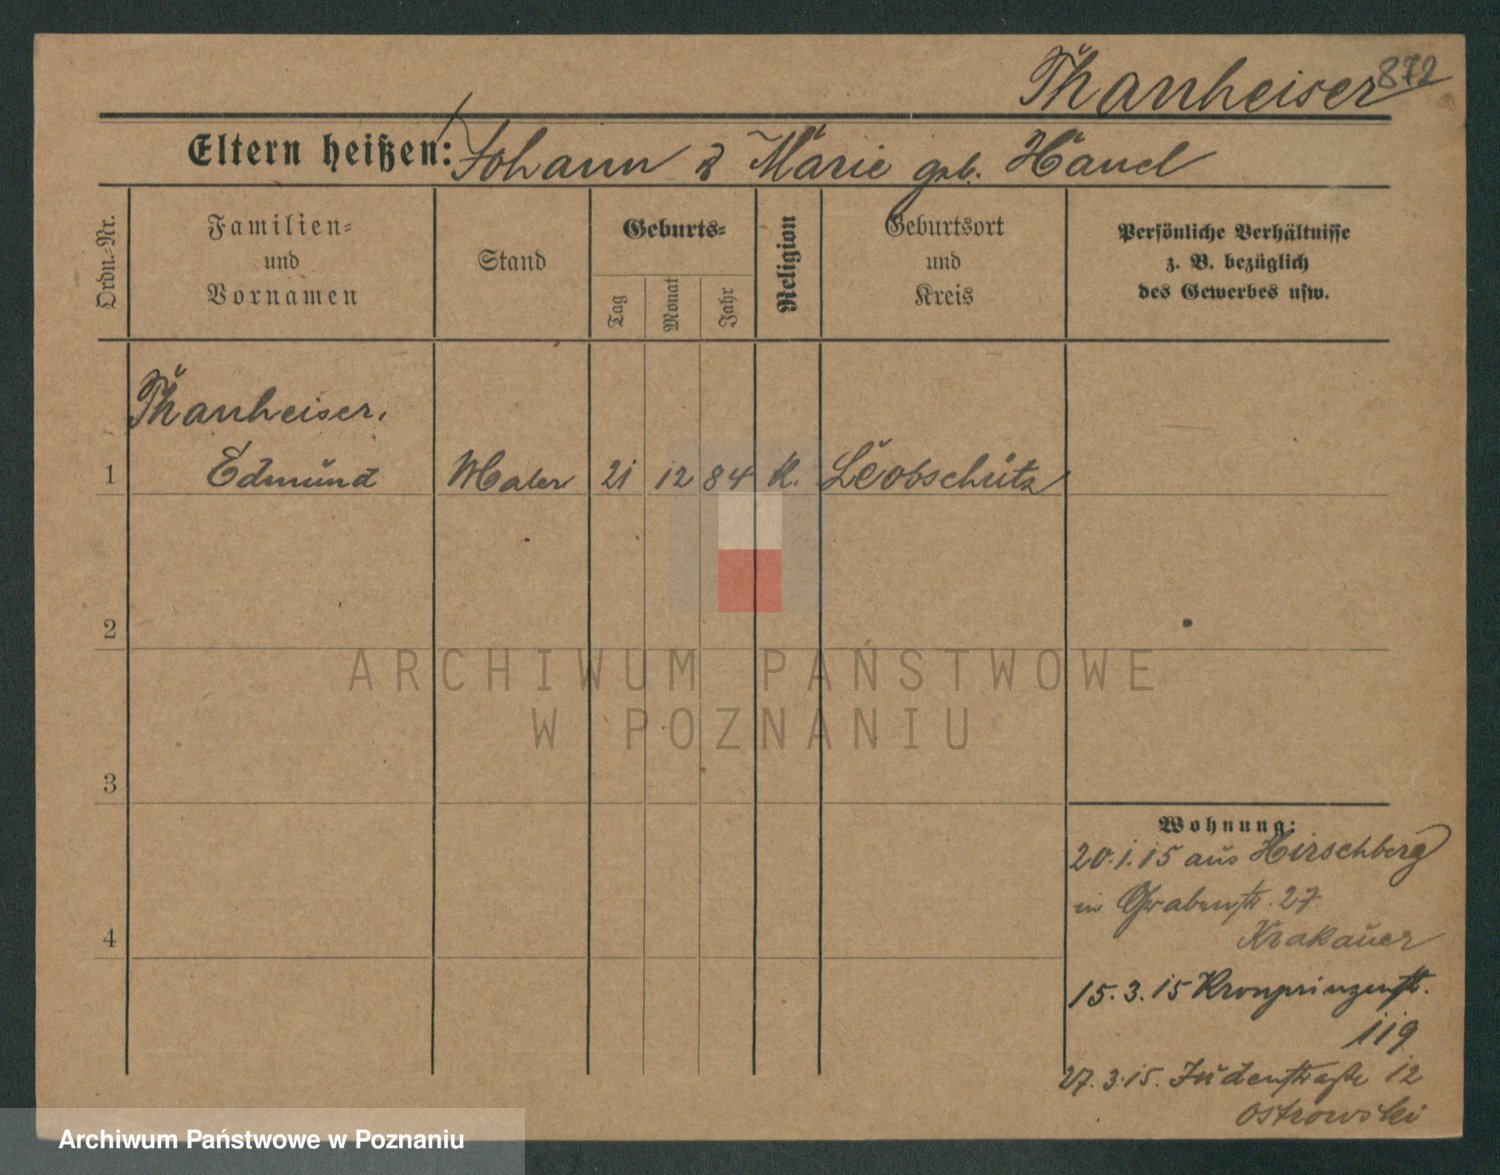 872
Thanheiser
Eltern heißen: Johann & Marie geb. Hanel
Ordn.-Nr.
Familien-
und
Vornamen
Stand
Geburts-
Tag
Monat
Jahr
Religion
Geburtsort
und
Kreis
Persönliche Verhältnisse
z. B. bezüglich
des Gewerbes usw.
Thanheiser,
1 Edmund Maler 21 12 84 K. Leobschütz
2
ARCHIWUM PAŃSTWOWE
W POZNANIU
3
Wohnung:
20.1.15 aus Hirschberg
in Grabenstr. 27
Krakauer
4
15.3.15 Kronprinzenstr.
119
27.3.15. Judenstraße 12
Ostrowski
Archiwum Państwowe w Poznaniu